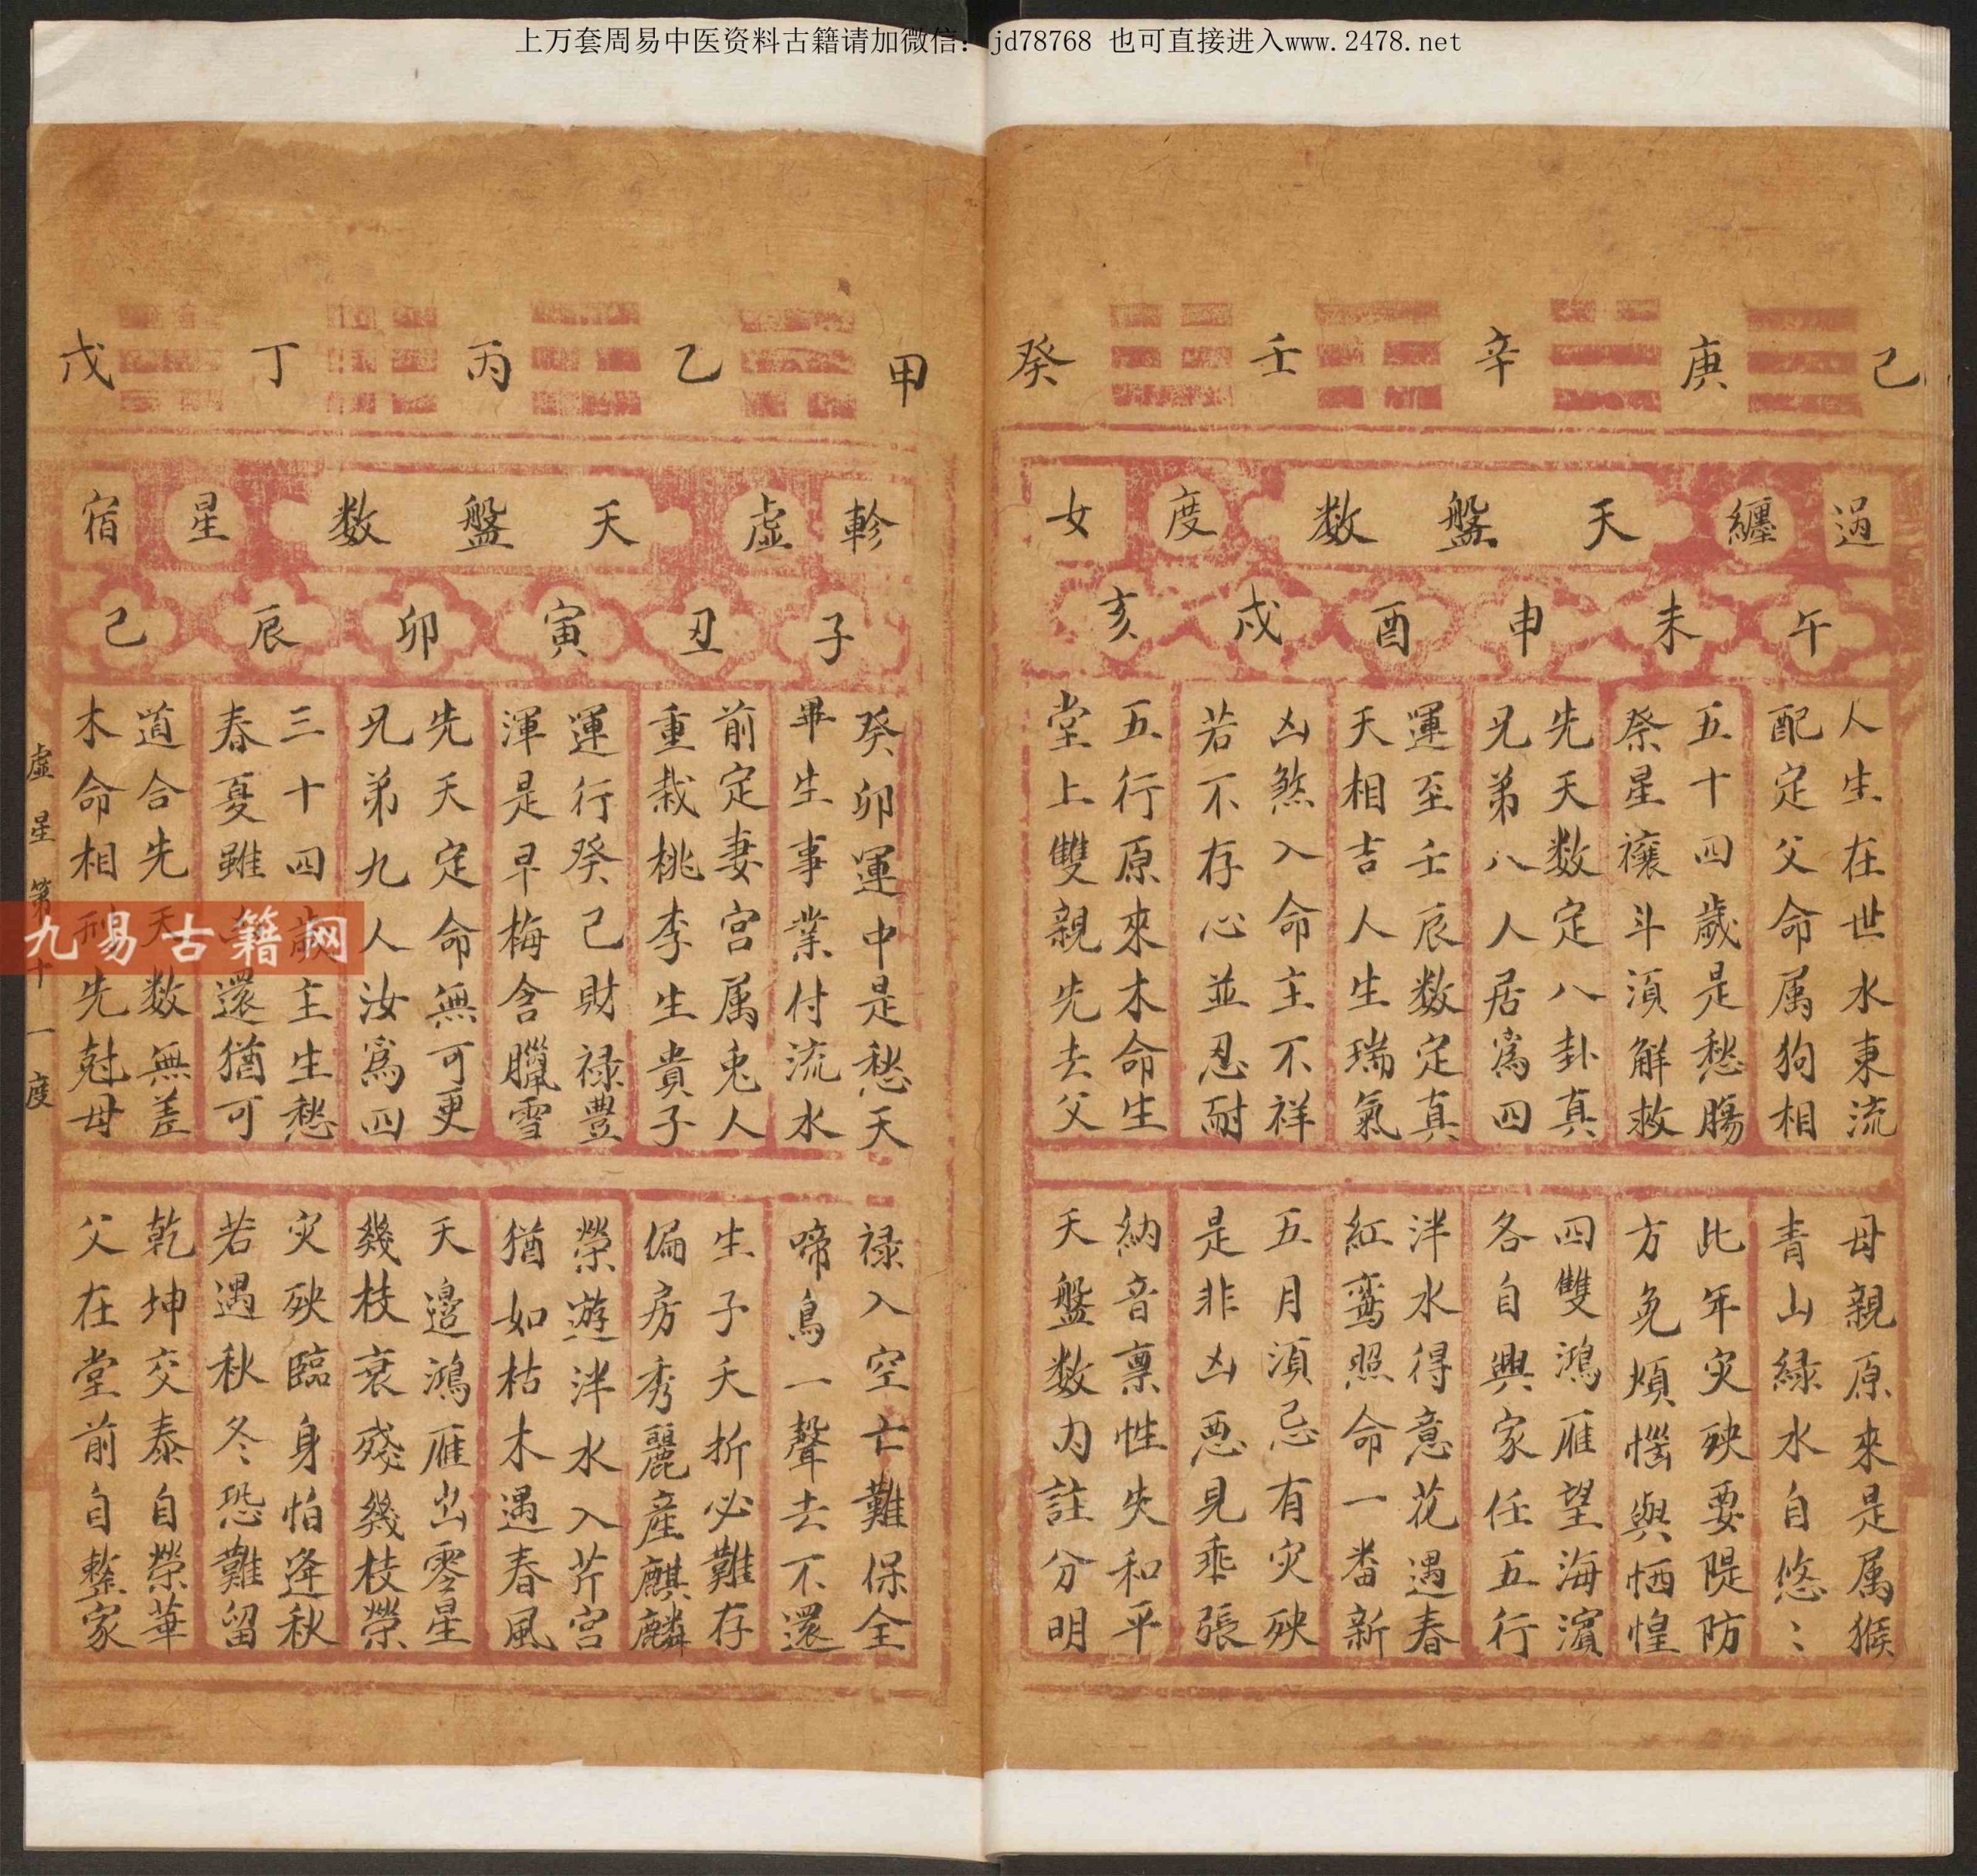 上万套周易中医资料古籍请加微信：jd78768 也可直接进入www.2478.net
己 庚 辛 壬 癸
過 纏 天 盤 数 度 女
午 未 申 酉 戌 亥
人生在世水東流
配定父命属狗相
母親原來是属猴
青山緑水自悠〻
五十四歲是愁腸
祭星禳斗湏解救
此年灾殃要隄防
方免煩惱與恓惶
先天数定八卦真
兄弟八人居爲四
四雙鴻雁望海濱
各自興家任五行
運至壬辰数定真
天相吉人生瑞氣
泮水得意花遇春
紅鸞照命一番新
凶煞入命主不祥
若不存心並忍耐
五月湏忌有灾殃
是非凶惡見乖張
五行原來木命生
堂上雙親先去父
納音禀性失和平
天盤数内註分明
甲 乙 丙 丁 戊
軫 虛 天 盤 数 星 宿
子 丑 寅 卯 辰 己
癸卯運中是愁天
畢生事業付流水
禄入空亡難保全
啼鳥一聲去不還
前定妻宫属兎人
重栽桃李生貴子
生子夭折必難存
偏房秀麗産麒麟
運行癸己財禄豊
渾是早梅含臘雪
榮遊泮水入芹宫
猶如枯木遇春風
先天定命無可更
兄弟九人汝爲四
天邉鴻雁出零星
幾枝衰殘幾枝榮
三十四歲主生愁
春夏雖還猶可
灾殃臨身怕逢秋
若遇秋冬恐難留
道合先天数無差
木命相刑先尅母
乾坤交泰自榮華
父在堂前自整家
虛星第十一度
九易古籍网